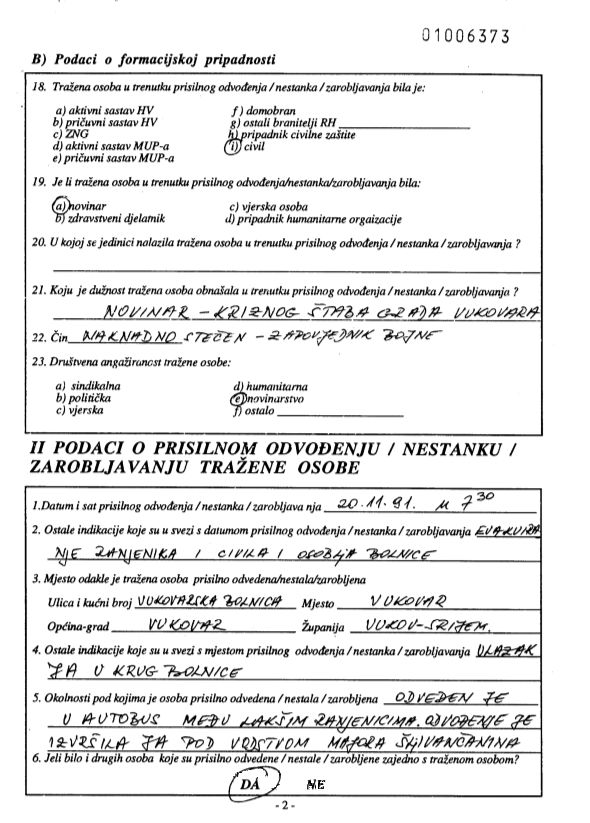 01006373
B) Podaci o formacijskoj pripadnosti
18. Tražena osoba u trenutku prisilnog odvođenja / nestanka / zarobljavanja bila je:
a) aktivni sastav HV f) domobran
b) pričuvni sastav HV g) ostali branitelji RH
c) ZNG h) pripadnik civilne zaštite
d) aktivni sastav MUP-a i) civil
e) pričuvni sastav MUP-a
19. Je li tražena osoba u trenutku prisilnog odvođenja/nestanka/zarobljavanja bila:
a) novinar c) vjerska osoba
b) zdravstveni djelatnik d) pripadnik humanitarne orgaizacije
20. U kojoj se jedinici nalazila tražena osoba u trenutku prisilnog odvođenja / nestanka / zarobljavanja ?
21. Koju je dužnost tražena osoba obnašala u trenutku prisilnog odvođenja / nestanka / zarobljavanja ?
NOVINAR - KRIZNOG ŠTABA GRADA VUKOVARA
22. Čin NAKNADNO STEČEN - ZAPOVJEDNIK BOJNE
23. Društvena angažiranost tražene osobe:
a) sindikalna d) humanitarna
b) politička e) novinarstvo
c) vjerska f) ostalo
II PODACI O PRISILNOM ODVOĐENJU / NESTANKU /
ZAROBLJAVANJU TRAŽENE OSOBE
1.Datum i sat prisilnog odvođenja / nestanka / zarobljava nja 20.11.91. u 7 30
2. Ostale indikacije koje su u svezi s datumom prisilnog odvođenja / nestanka / zarobljavanja EVAKUIRA
NJE RANJENIKA I CIVILA I OSOBLJA BOLNICE
3. Mjesto odakle je tražena osoba prisilno odvedena/nestala/zarobljena
Ulica i kućni broj VUKOVARSKA BOLNICA Mjesto VUKOVAR
Općina-grad VUKOVAR Županija VUKOV-SRIJEM.
4. Ostale indikacije koje su u svezi s mjestom prisilnog odvođenja / nestanka / zarobljavanja ULAZAK
JA U KRUG BOLNICE
5. Okolnosti pod kojima je osoba prisilno odvedena / nestala / zarobljena ODVEDEN JE
U AUTOBUS MEĐU LAKŠIM RANJENICIMA. ODVOĐENJE JE
IZVRŠILA JA POD VODSTVOM MAJORA ŠLJIVANČANINA
6. Jeli bilo i drugih osoba koje su prisilno odvedene / nestale / zarobljene zajedno s traženom osobom?
DA NE
- 2 -